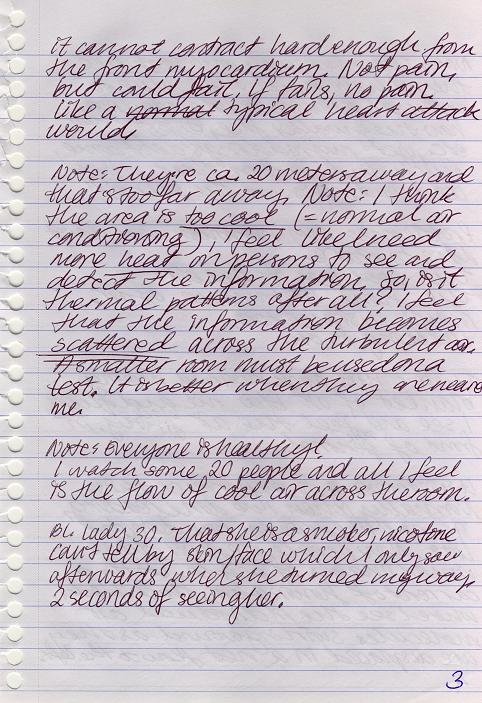 it cannot contract hard enough from
the front myocardium. Not pain,
but could fail, if fails, no pain
like a normal typical heart attack
would.
Note: They're ca. 20 meters away and
that is too far away. Note: I think
the area is too cool (=normal air
conditioning), I feel like I need
more heat on persons to see and
detect the information. So, is it
thermal patterns after all? I feel
that the information becomes
scattered across the turbulent air.
A smaller room must be used on a
test. It is better when they are nearer
me.
Note: Everyone is healthy!
I watch some 20 people and all I feel
is the flow of cool air across the room.
Bl. lady 30. That she is a smoker, nicotine
can't tell by skin/face which I only saw
afterwards when she turned my way,
2 seconds of seeing her.
3